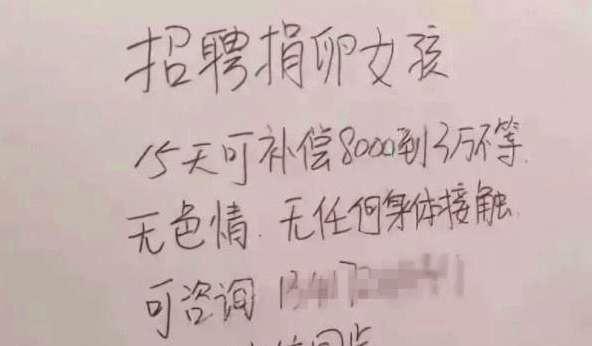 招聘捐卵女孩
15天可补偿8000到3万不等.
无色情.无任何身体接触.
可咨询 13417